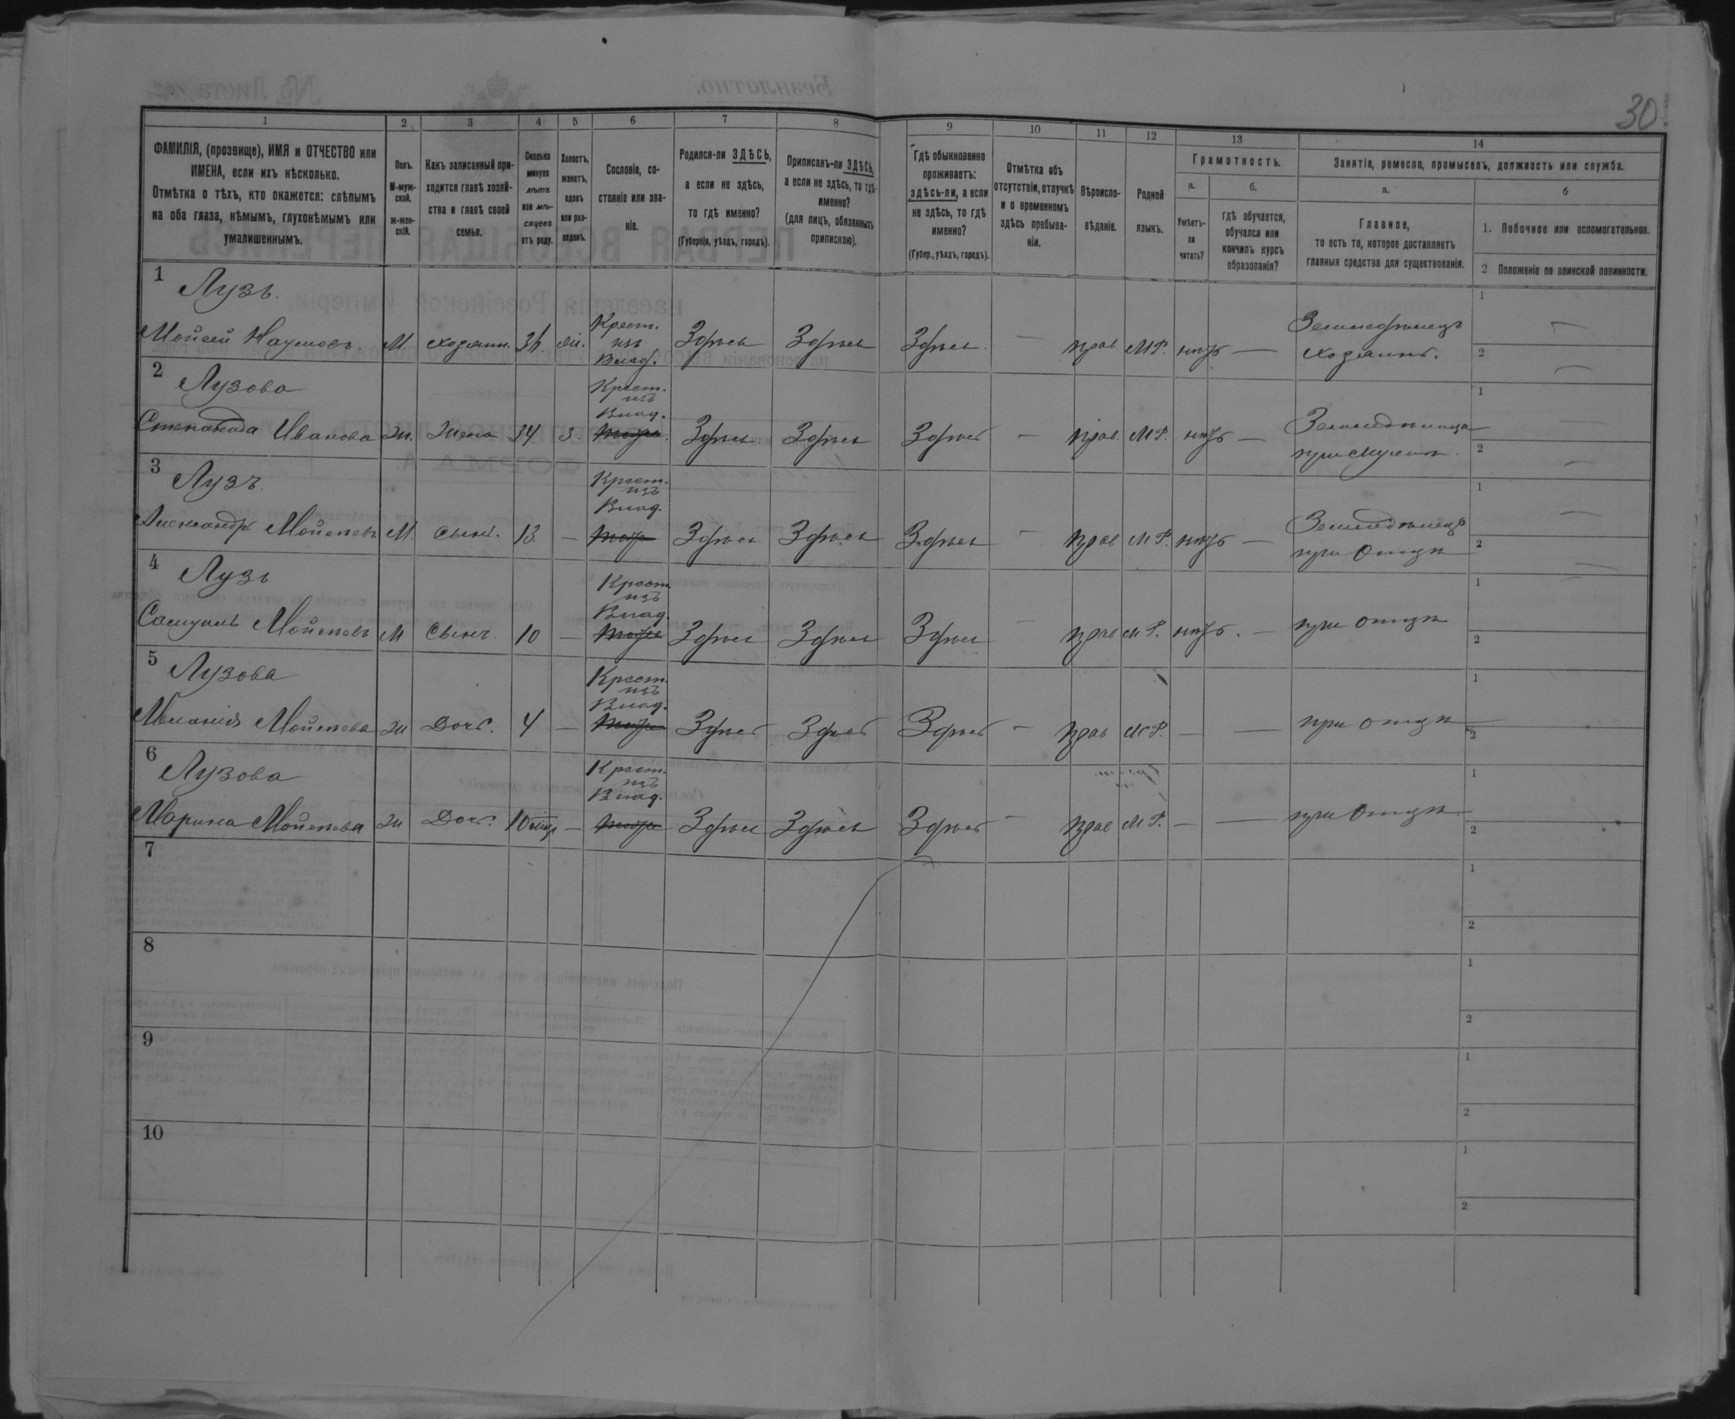 30
1 2 3 4 5 6 7 8 9 10 11 12 13 14
ФАМИЛІЯ, (прозвище), ИМЯ и ОТЧЕСТВО или ИМЕНА, если ихъ нѣсколько.
Отмѣтка о тѣхъ, кто окажется: слѣпымъ на оба глаза, нѣмымъ, глухонѣмымъ или умалишеннымъ.
Полъ.
М-мужской.
Ж-женскій.
Какъ записанный приходится главѣ хозяйства и главѣ своей семьи.
Сколько минуло лѣтъ или мѣсяцевъ отъ роду.
Холостъ, женатъ, вдовъ или разведенъ.
Сословіе, состояніе или званіе.
Родился-ли ЗДѢСЬ, а если не здѣсь, то гдѣ именно?
(Губернія, уѣздъ, городъ).
Приписанъ-ли ЗДѢСЬ, а если не здѣсь, то гдѣ именно?
(для лицъ, обязанныхъ припискою).
Гдѣ обыкновенно проживаетъ: ЗДѢСЬ-ЛИ, а если не здѣсь, то гдѣ именно?
(Губер., уѣздъ, городъ).
Отмѣтка объ отсутствіи, отлучкѣ и о временномъ здѣсь пребываніи.
Вѣроисповѣданіе.
Родной языкъ.
Грамотность.
а.
Умѣетъ-ли читать?
б.
гдѣ обучается, обучался или кончилъ курсъ образованія?
Занятіе, ремесло, промыселъ, должность или служба.
а.
Главное,
то есть то, которое доставляетъ главныя средства для существованія.
б
1. Побочное или вспомогательное.
2 Положеніе по воинской повинности.
1
Лузъ.
Мойсей Наумовъ. М. хозяинъ. Крест. изъ Влад. Здѣсь Здѣсь Здѣсь — прав М.Р. нѣтъ — Земледѣлецъ хозяинъ.
1 —
2 —
2
Лузова
Степанида Иванова Ж. Жена 34 З. Крест. изъ Влад. Здѣсь Здѣсь Здѣсь — прав. М.Р. нѣтъ — при мужѣ
1 —
2 —
3
Лузъ.
Александръ Мойсеевъ М. сынъ. 13. — Крест. изъ Влад. Здѣсь Здѣсь Здѣсь — прав М.Р. нѣтъ — Земледѣлецъ при отцѣ
1 —
2 —
4
Лузъ
Самуилъ Мойсеевъ М сынъ. 10 — Крест. изъ Влад. Здѣсь Здѣсь Здѣсь — прав М.Р. нѣтъ. — при отцѣ
1
2
5
Лузова
Меланія Мойсеева Ж Дочь. 4 — Крест. изъ Влад. Здѣсь Здѣсь Здѣсь — прав М.Р. — — при отцѣ
1
2
6
Лузова
Марина Мойсеева Ж Дочь. 10 мѣс — Крест. изъ Влад. Здѣсь Здѣсь Здѣсь — прав М.Р. — — при отцѣ
1
2
7
1
2
8
1
2
9
1
2
10
1
2